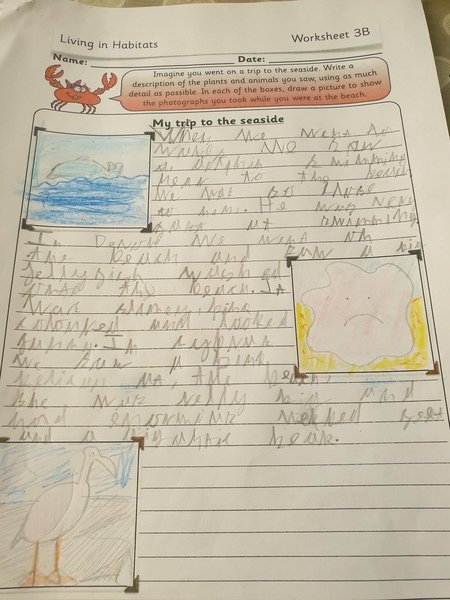 Living in Habitats
Worksheet 3B
Name:
Date:
Imagine you went on a trip to the seaside. Write a
description of the plants and animals you saw, using as much
detail as possible. In each of the boxes, draw a picture to show
the photographs you took while you were at the beach.
My trip to the seaside
When we went to
Wales we saw
a dolphin swimming
near to the beach
We was so
to him. He was
at swimming
In Devon we went on
the beach and saw a big
Jellyfish
onto the beach. It
was slimey, pink
coloured and looked
funny. In
we saw a bird
the beach.
She was relly big and
had enormous webbed feet
and a beak.